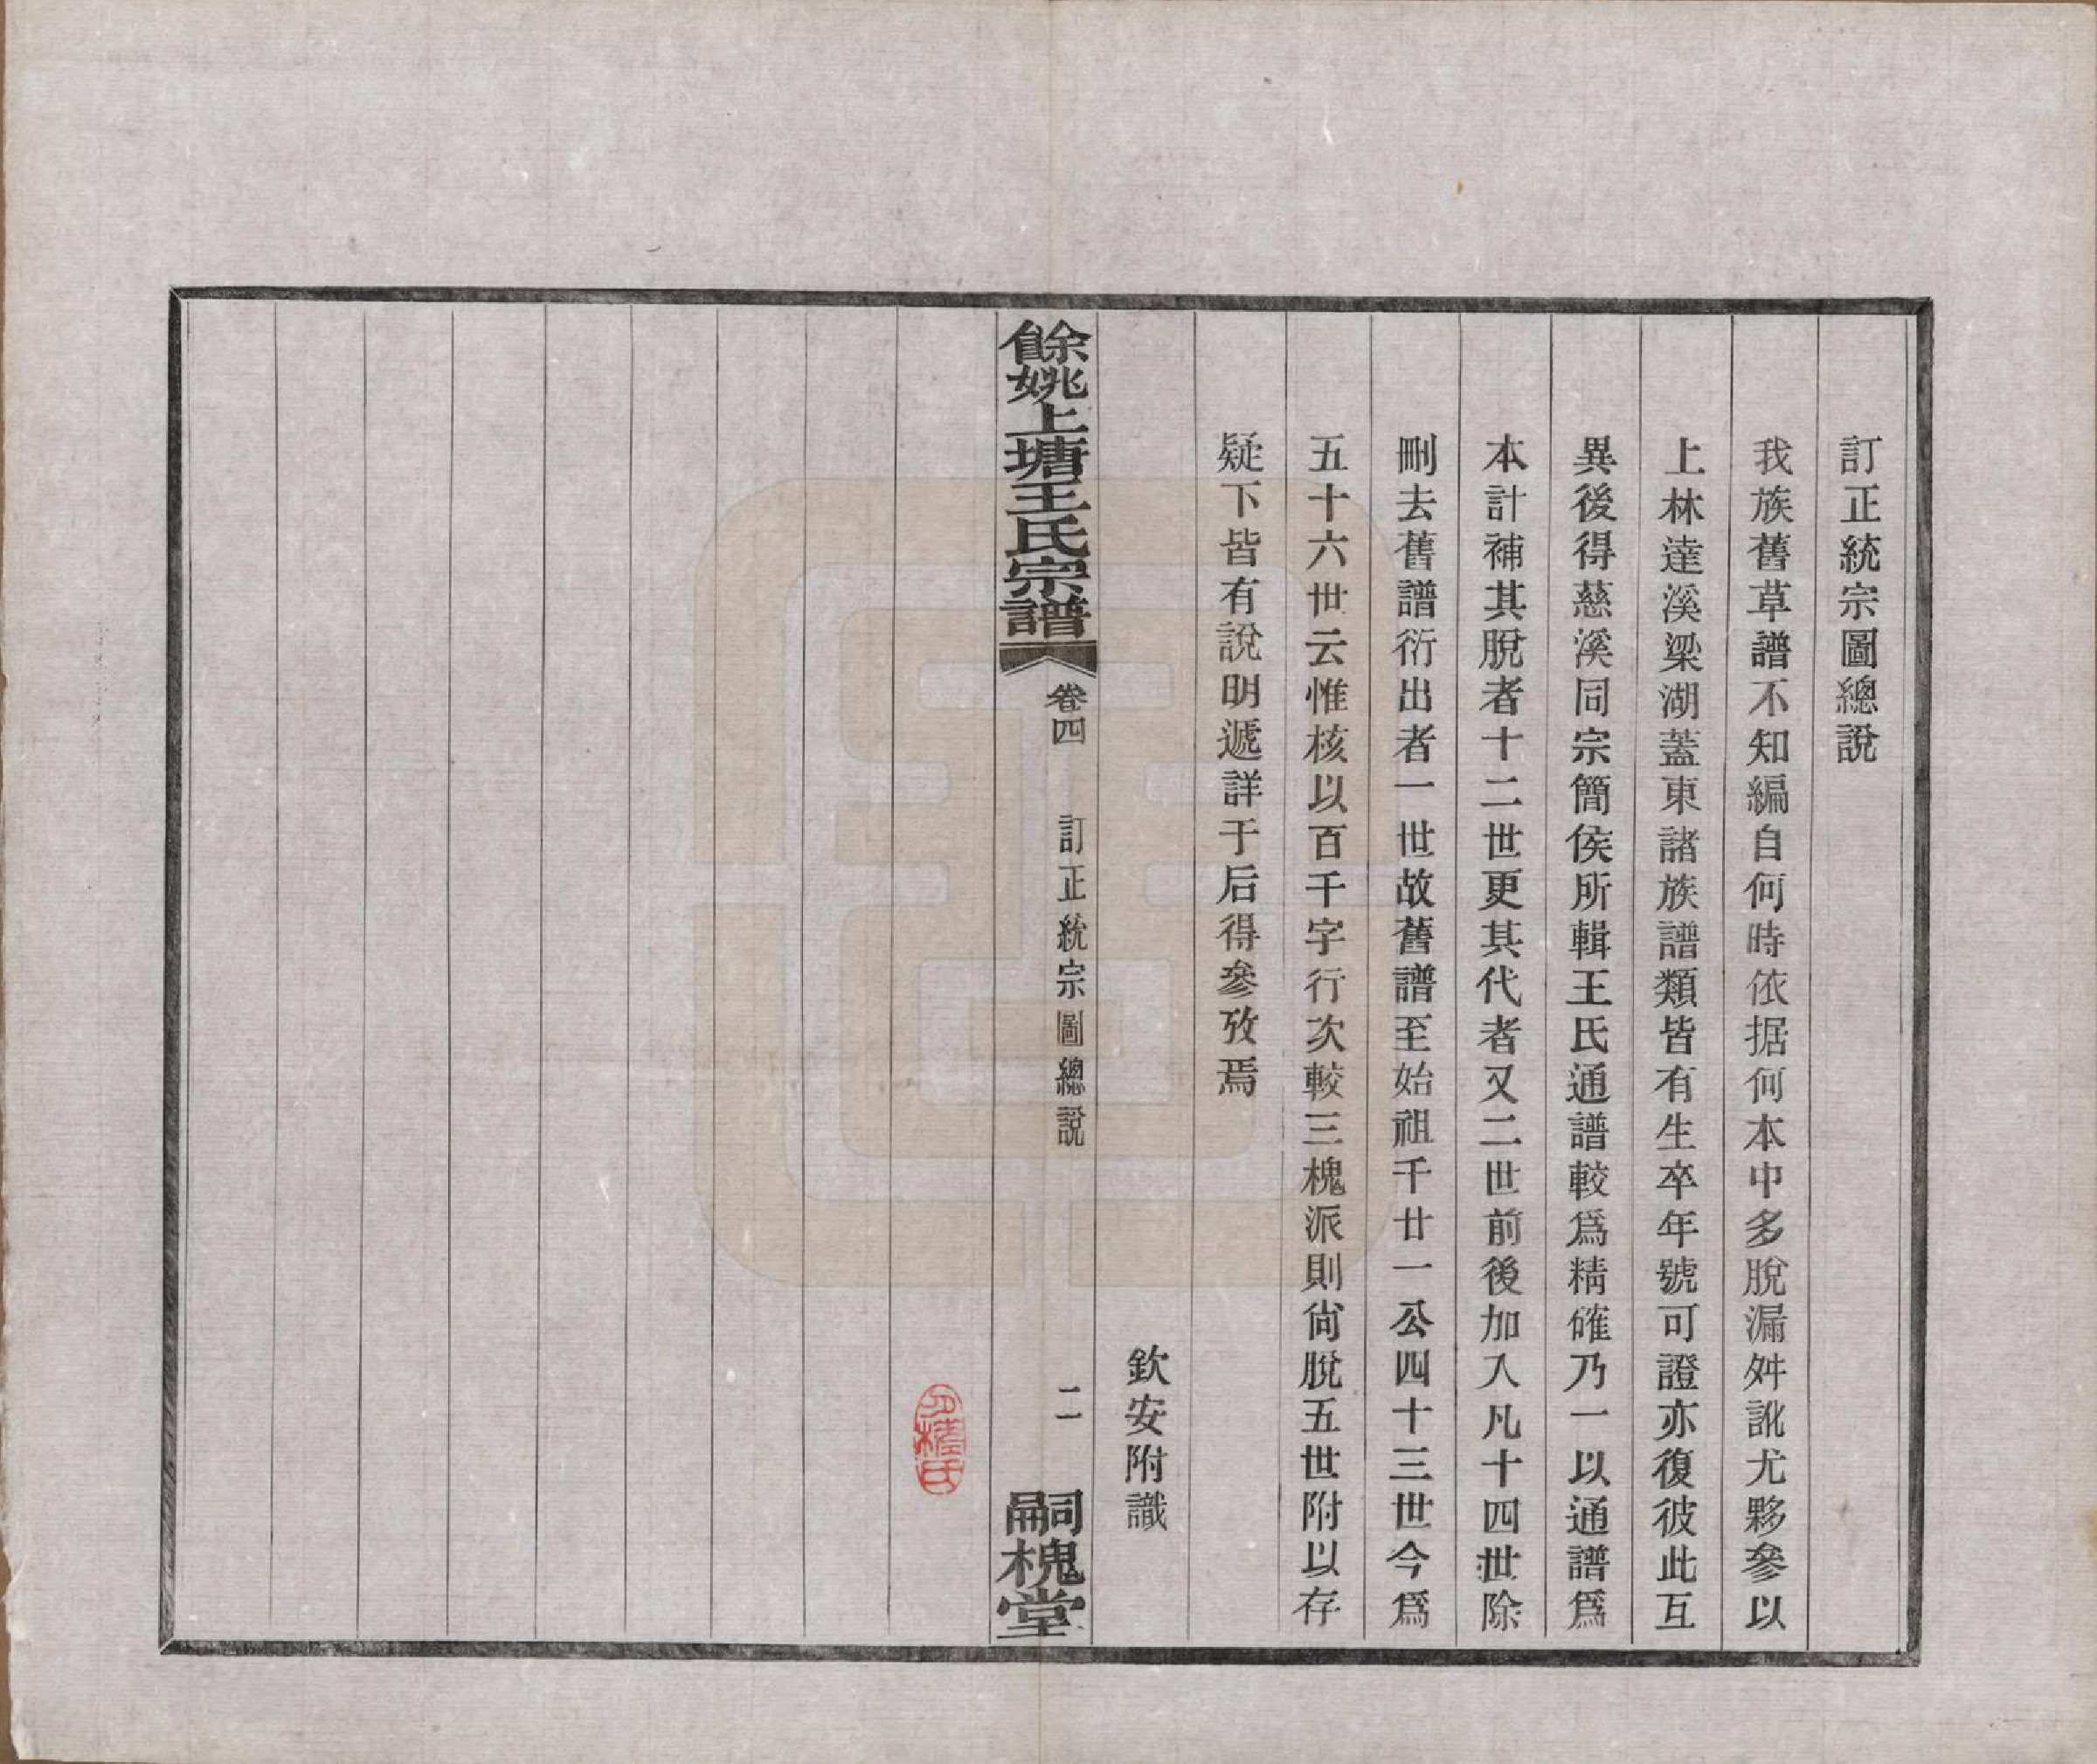 訂正統宗圖總說
我族舊草譜不知編自何時依据何本中多脫漏舛訛尤夥參以
上林達溪梁湖蓋東諸族譜類皆有生卒年號可證亦復彼此互
異後得慈溪同宗簡侯所輯王氏通譜較爲精確乃一以通譜爲
本計補其脫者十二世更其代者又二世前後加入凡十四世除
刪去舊譜衍出者一世故舊譜至始祖千廿一公四十三世今爲
五十六世云惟核以百千字行次較三槐派則尙脫五世附以存
疑下皆有說明遞詳于后得參攷焉
欽安附識
餘姚上塘王氏宗譜
卷四
訂正統宗圖總說
二
嗣槐堂